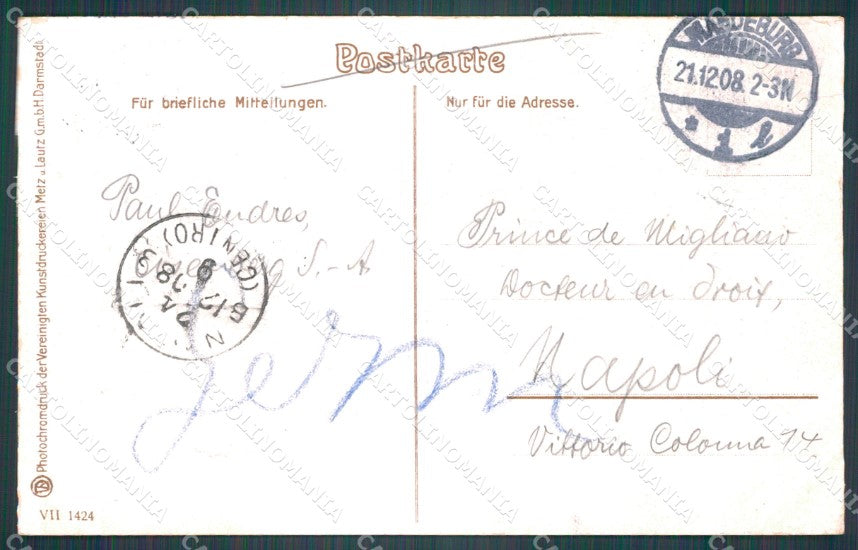 Postkarte
MAGDEBURG
21.12.08. 2-3N
* 1 l
Für briefliche Mitteilungen.
Nur für die Adresse.
Paul Endres,
S.-A
(CENTRO)
Prince de Migliano
Docteur en droit,
Napoli
Vittorio Colonna 14
Photochromdruck der Vereinigten Kunstdruckereien Metz u. Lautz G.m.b.H. Darmstadt
VII 1424
CARTOLINOMANIA